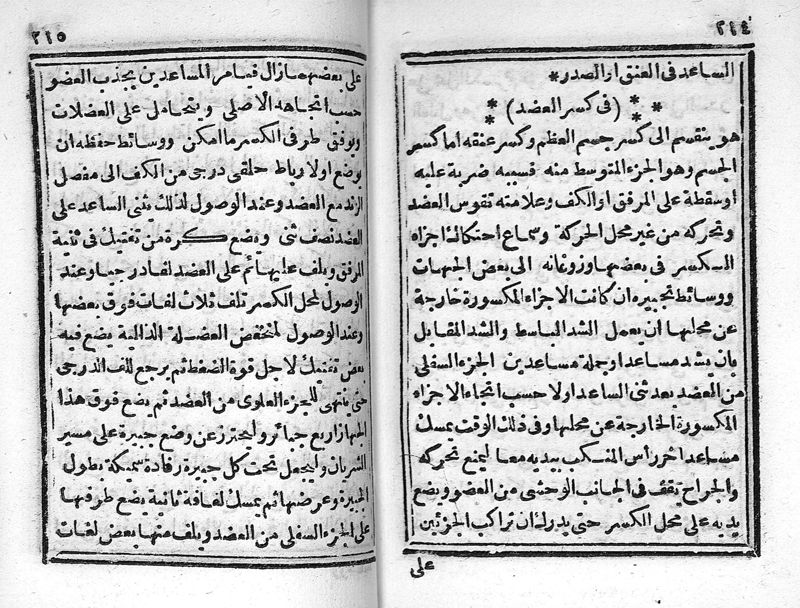 ٢١٤
الساعد فى العنق او الصدر *
* * * (فى كسر العضد) * * *
هو ينقسم الى كسر جسم العظم وكسر عنقه اما كسر
الجسم وهو الجزء المتوسط منه فسببه ضربة عليه
او سقطة على المرفق او الكف وعلامته تقوس العضد
وتحركه من غير محل الحركة وسماع احتكاك اجزاء
الكسر فى بعضها وزوغانه الى بعض الجهات
ووسائط تجبيره ان كانت الاجزاء المكسورة خارجة
عن محلها ان يعمل الشد الباسط والشد المقابل
بان يشد مساعد او جملة مساعدين الجزء السفلى
من العضد بعد ثنى الساعد اولا حسب اتجاه الاجزاء
المكسورة الخارجة عن محلها وفى ذلك الوقت يمسك
مساعد اخر رأس المنكب بيديه معا ليمنع تحركه
والجراح يقف فى الجانب الوحشى من العضو ويضع
يديه على محل الكسر حتى يدرك ان تراكب الجزئين
على
٢١٥
على بعضهما زال فيامر المساعدين بجذب العضو
حسب اتجاهه الاصلى ويتحامل على العضلات
ويوفق طرفى الكسر ما امكن ووسائط حفظه ان
يوضع اولا رباط حلقى درجى من الكف الى مفصل
الزند مع العضد وعند الوصول لذلك يثنى الساعد على
العضد نصف ثنى ويضع كرة من تفتيك فى ثنية
المرفق ويلف عليها ثم على العضد لفا درجيا وعند
الوصول لمحل الكسر تلف ثلاث لفات فوق بعضها
وعند الوصول لمنخفض العضلة الدالية يضع فيه
بعض تفتيك لاجل قوة الضغط ثم يرجع للف الدرجى
حتى ينتهى للجزء العلوى من العضد ثم يضع فوق هذا
الجهاز اربع جبائر وليحترز عن وضع جبيرة على مسير
الشريان وليجعل تحت كل جبيرة رفادة سميكة بطول
الجبيرة وعرضها ثم يمسك لفافة ثانية يضع طرفها
على الجزء السفلى من العضد ويلف منها بعض لفات